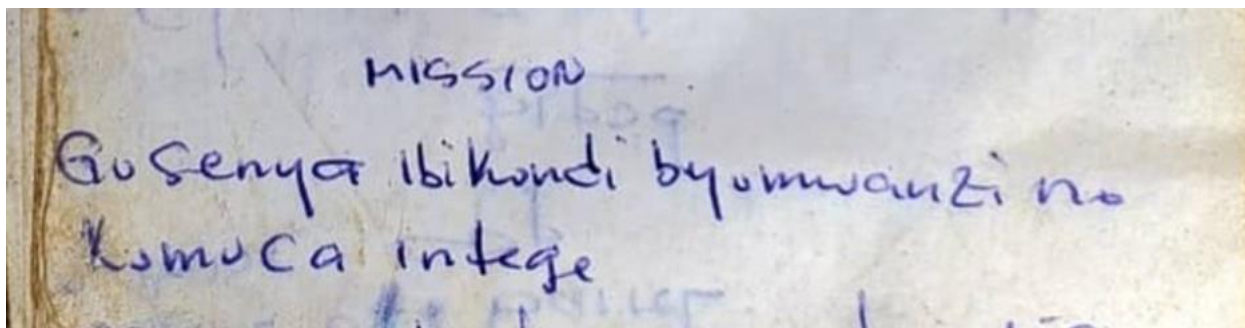 MISSION
Gusenya ibikondi byumwanzi no
kumuca intege